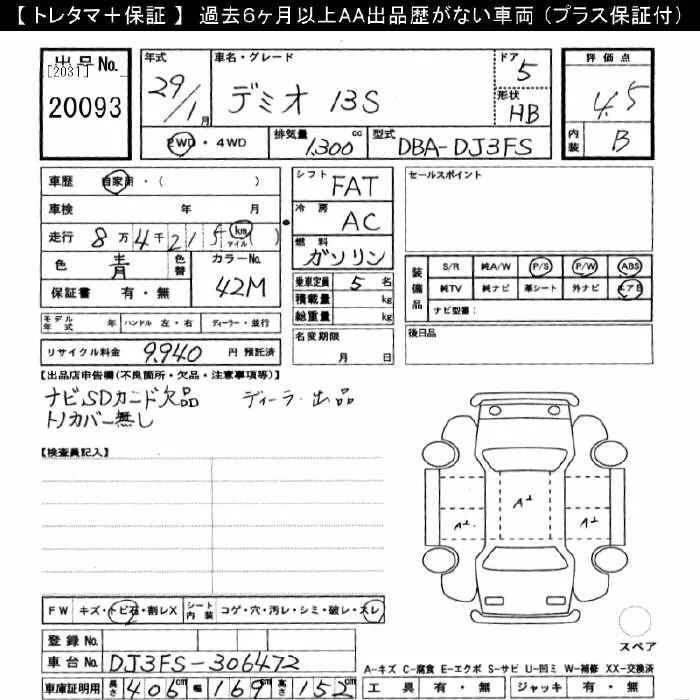 【 トレタマ＋保証 】 過去6ヶ月以上AA出品歴がない車両（プラス保証付）
出品No.
[2031]
20093
年式
29/1月
車名・グレード
デミオ 13S
ドア
5
形状
HB
評価点
4.5
内装
B
2WD・4WD
排気量 1,300 cc
型式 DBA-DJ3FS
車歴 自家用・( )
車検 年 月
走行 8万4千215 (km マイル)
色 青
色替
カラーNo. 42M
保証書 有・無
シフト FAT
冷房 AC
燃料 ガソリン
乗車定員 5 名
積載量 kg
総重量 kg
セールスポイント
装備品
S/R 純A/W P/S P/W ABS
純TV 純ナビ 革シート 外ナビ エアB
ナビ型番:
モデル年式 年 ハンドル 左・右 ディーラー・並行
名変期限
月 日
後日品
リサイクル料金 9,940 円 預託済
【出品店申告欄(不良箇所・欠品・注意事項等)】
ナビSDカード欠品 ディーラー出品
トノカバー無し
【検査員記入】
A1
A1
A1
FW キズ・トビ石・割レX
シート内装 コゲ・穴・汚レ・シミ・破レ・スレ
スペア
登録No.
車台No. DJ3FS-306472
A-キズ C-腐食 E-エクボ S-サビ U-凹ミ W-補修 XX-交換済
車庫証明用 長さ 406cm 幅 169cm 高さ 152cm
工具 有・無 ジャッキ 有・無